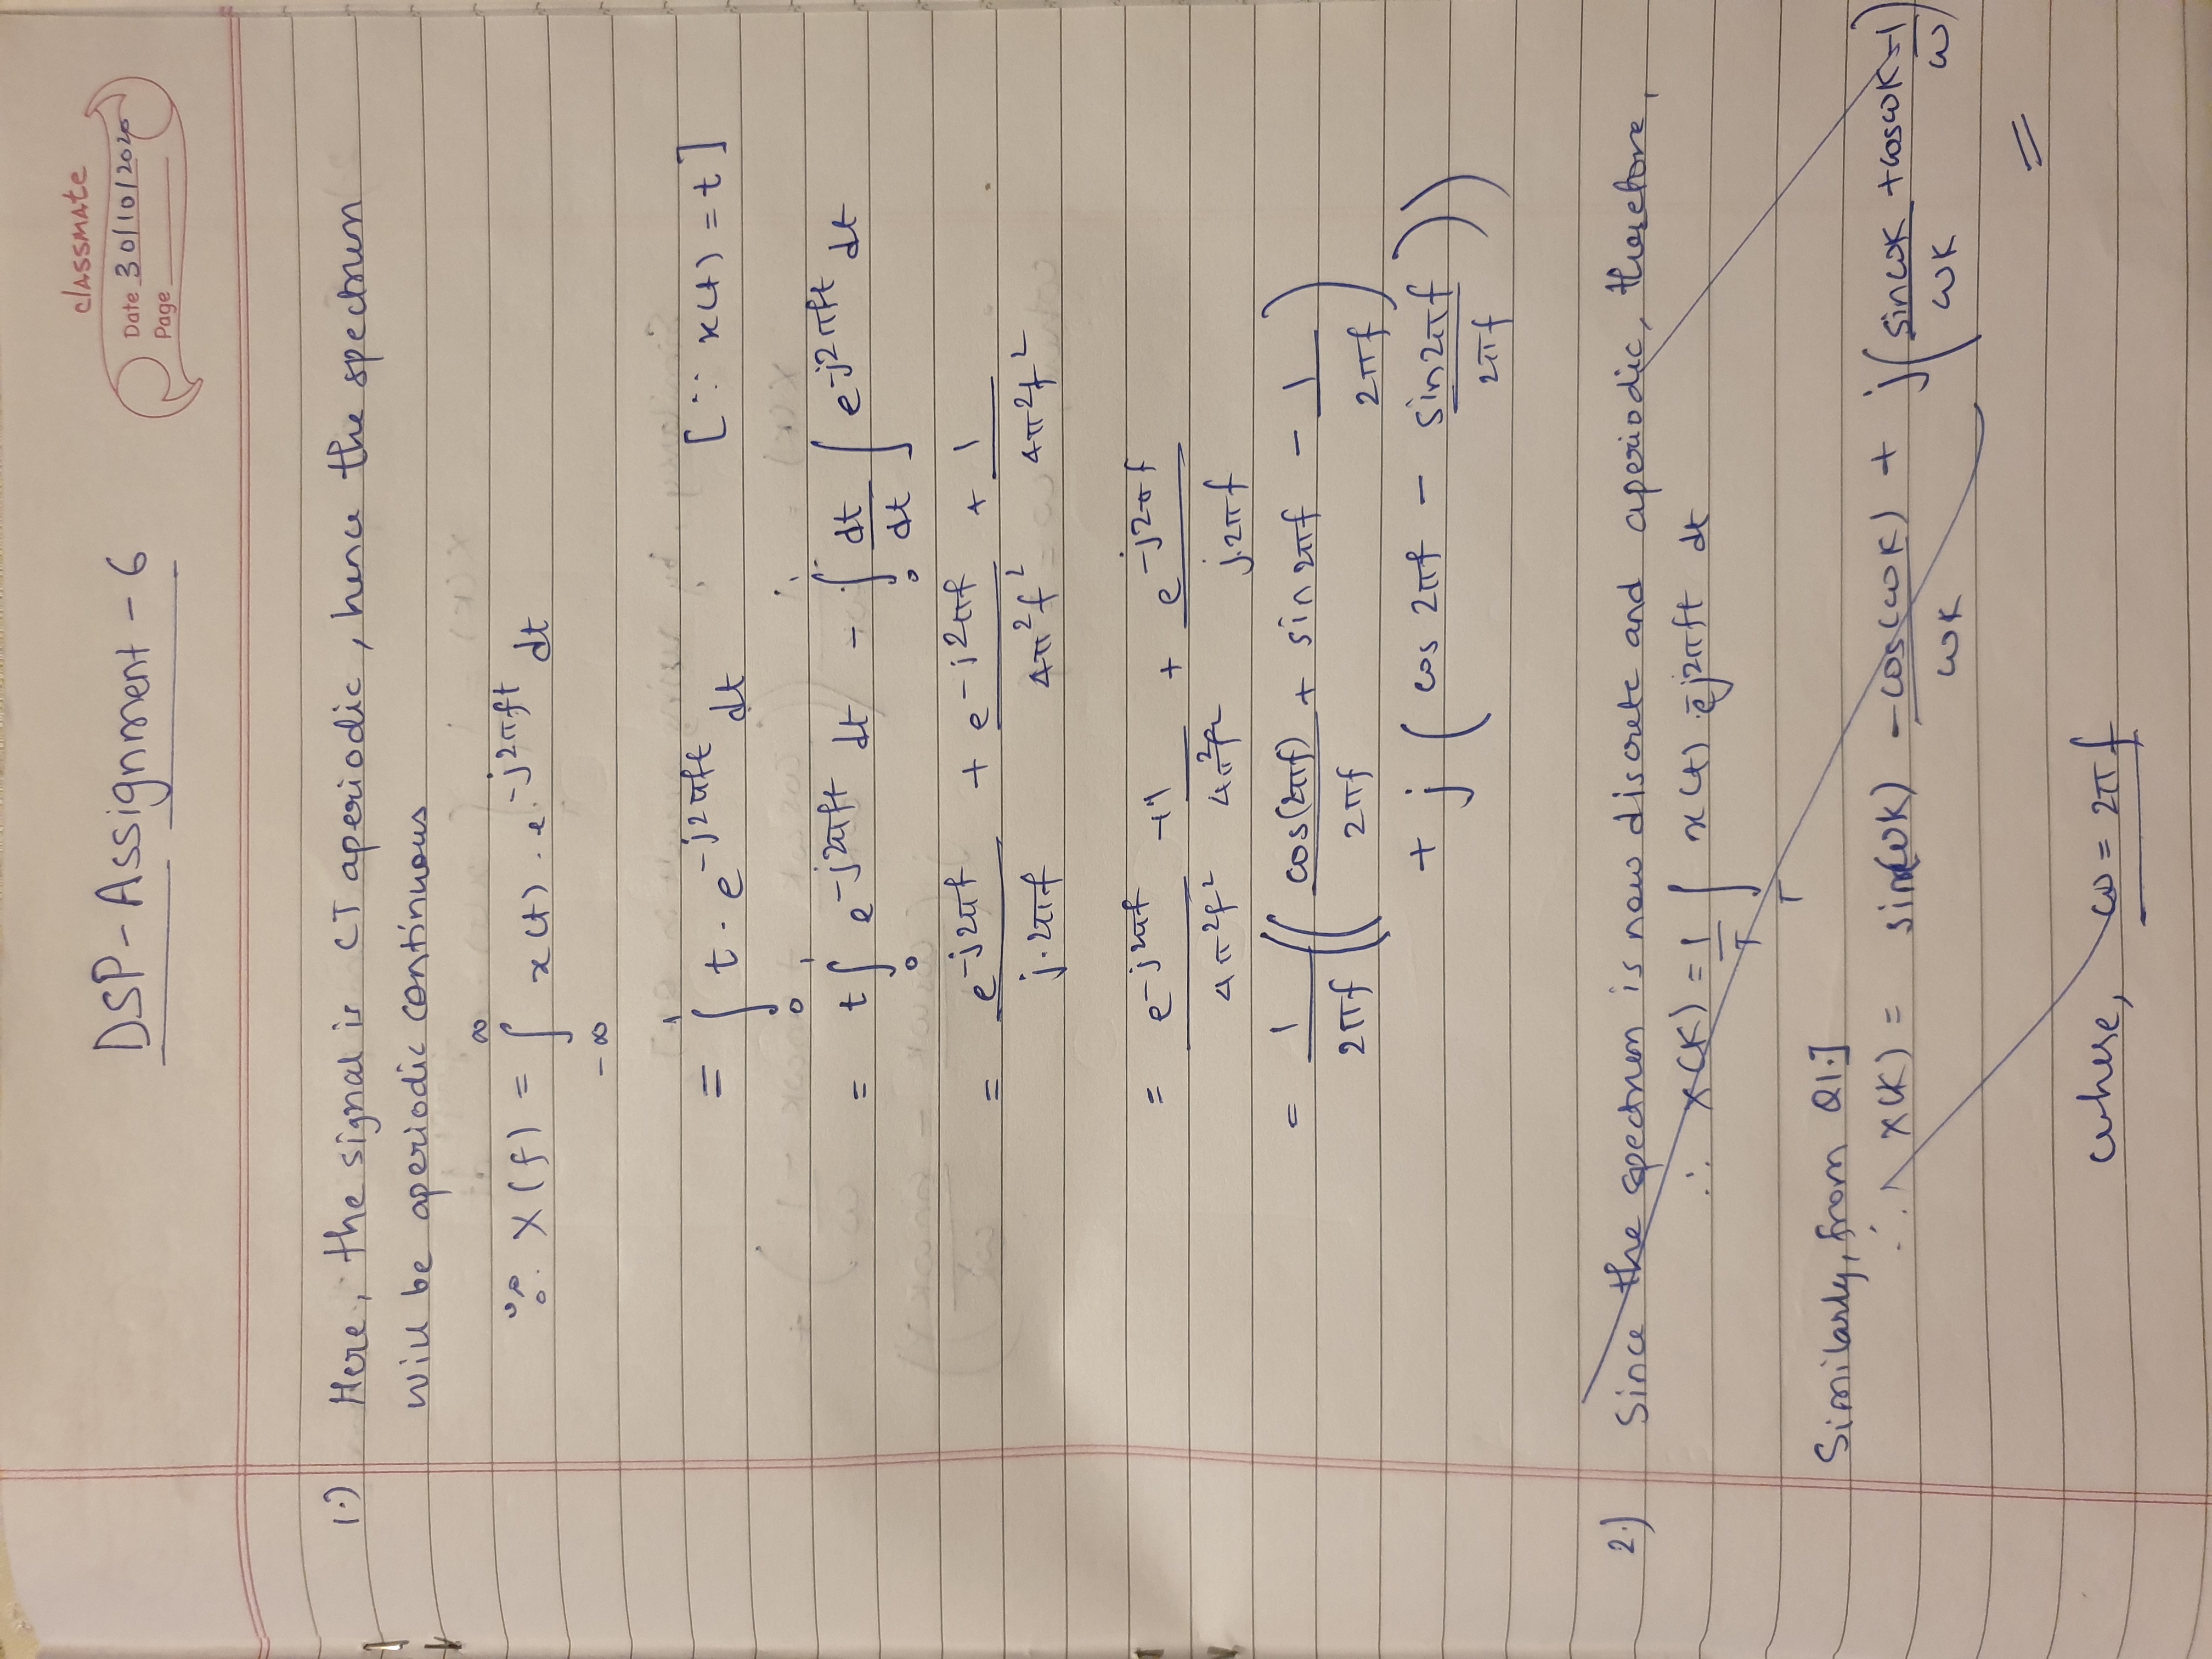 DSP-Assignment-6
classmate
Date 30/10/2020
Page
1.) Here, the signal is CT aperiodic, hence the spectrum
will be aperiodic continuous
∵ X(f) = ∫_{-∞}^{∞} x(t) . e^{-j2πft} dt
= ∫_0^1 t . e^{-j2πft} dt [∵ x(t) = t]
= t∫_0^1 e^{-j2πft} dt - ∫_0^1 dt/dt ∫ e^{-j2πft} dt
= e^{-j2πf}/j.2πf + e^{-j2πf}/4π²f² + 1/4π²f²
= e^{-j2πf}/4π²f² + 1/4π²f² + e^{-j2πf}/j.2πf
= 1/2πf ((cos(2πf)/2πf + sin2πf - 1/2πf)
+ j (cos 2πf - sin2πf/2πf))
2.) Since the spectrum is now discrete and aperiodic, therefore,
∴ X(K) = 1/T ∫_T x(t) . e^{-j2πft} dt
Similarly, from Q1.]
∴ X(K) = sin(ωK) - cos(ωK)/ωK + j(sinωK/ωK + cosωK - 1/ω)
=
where, ω = 2πf